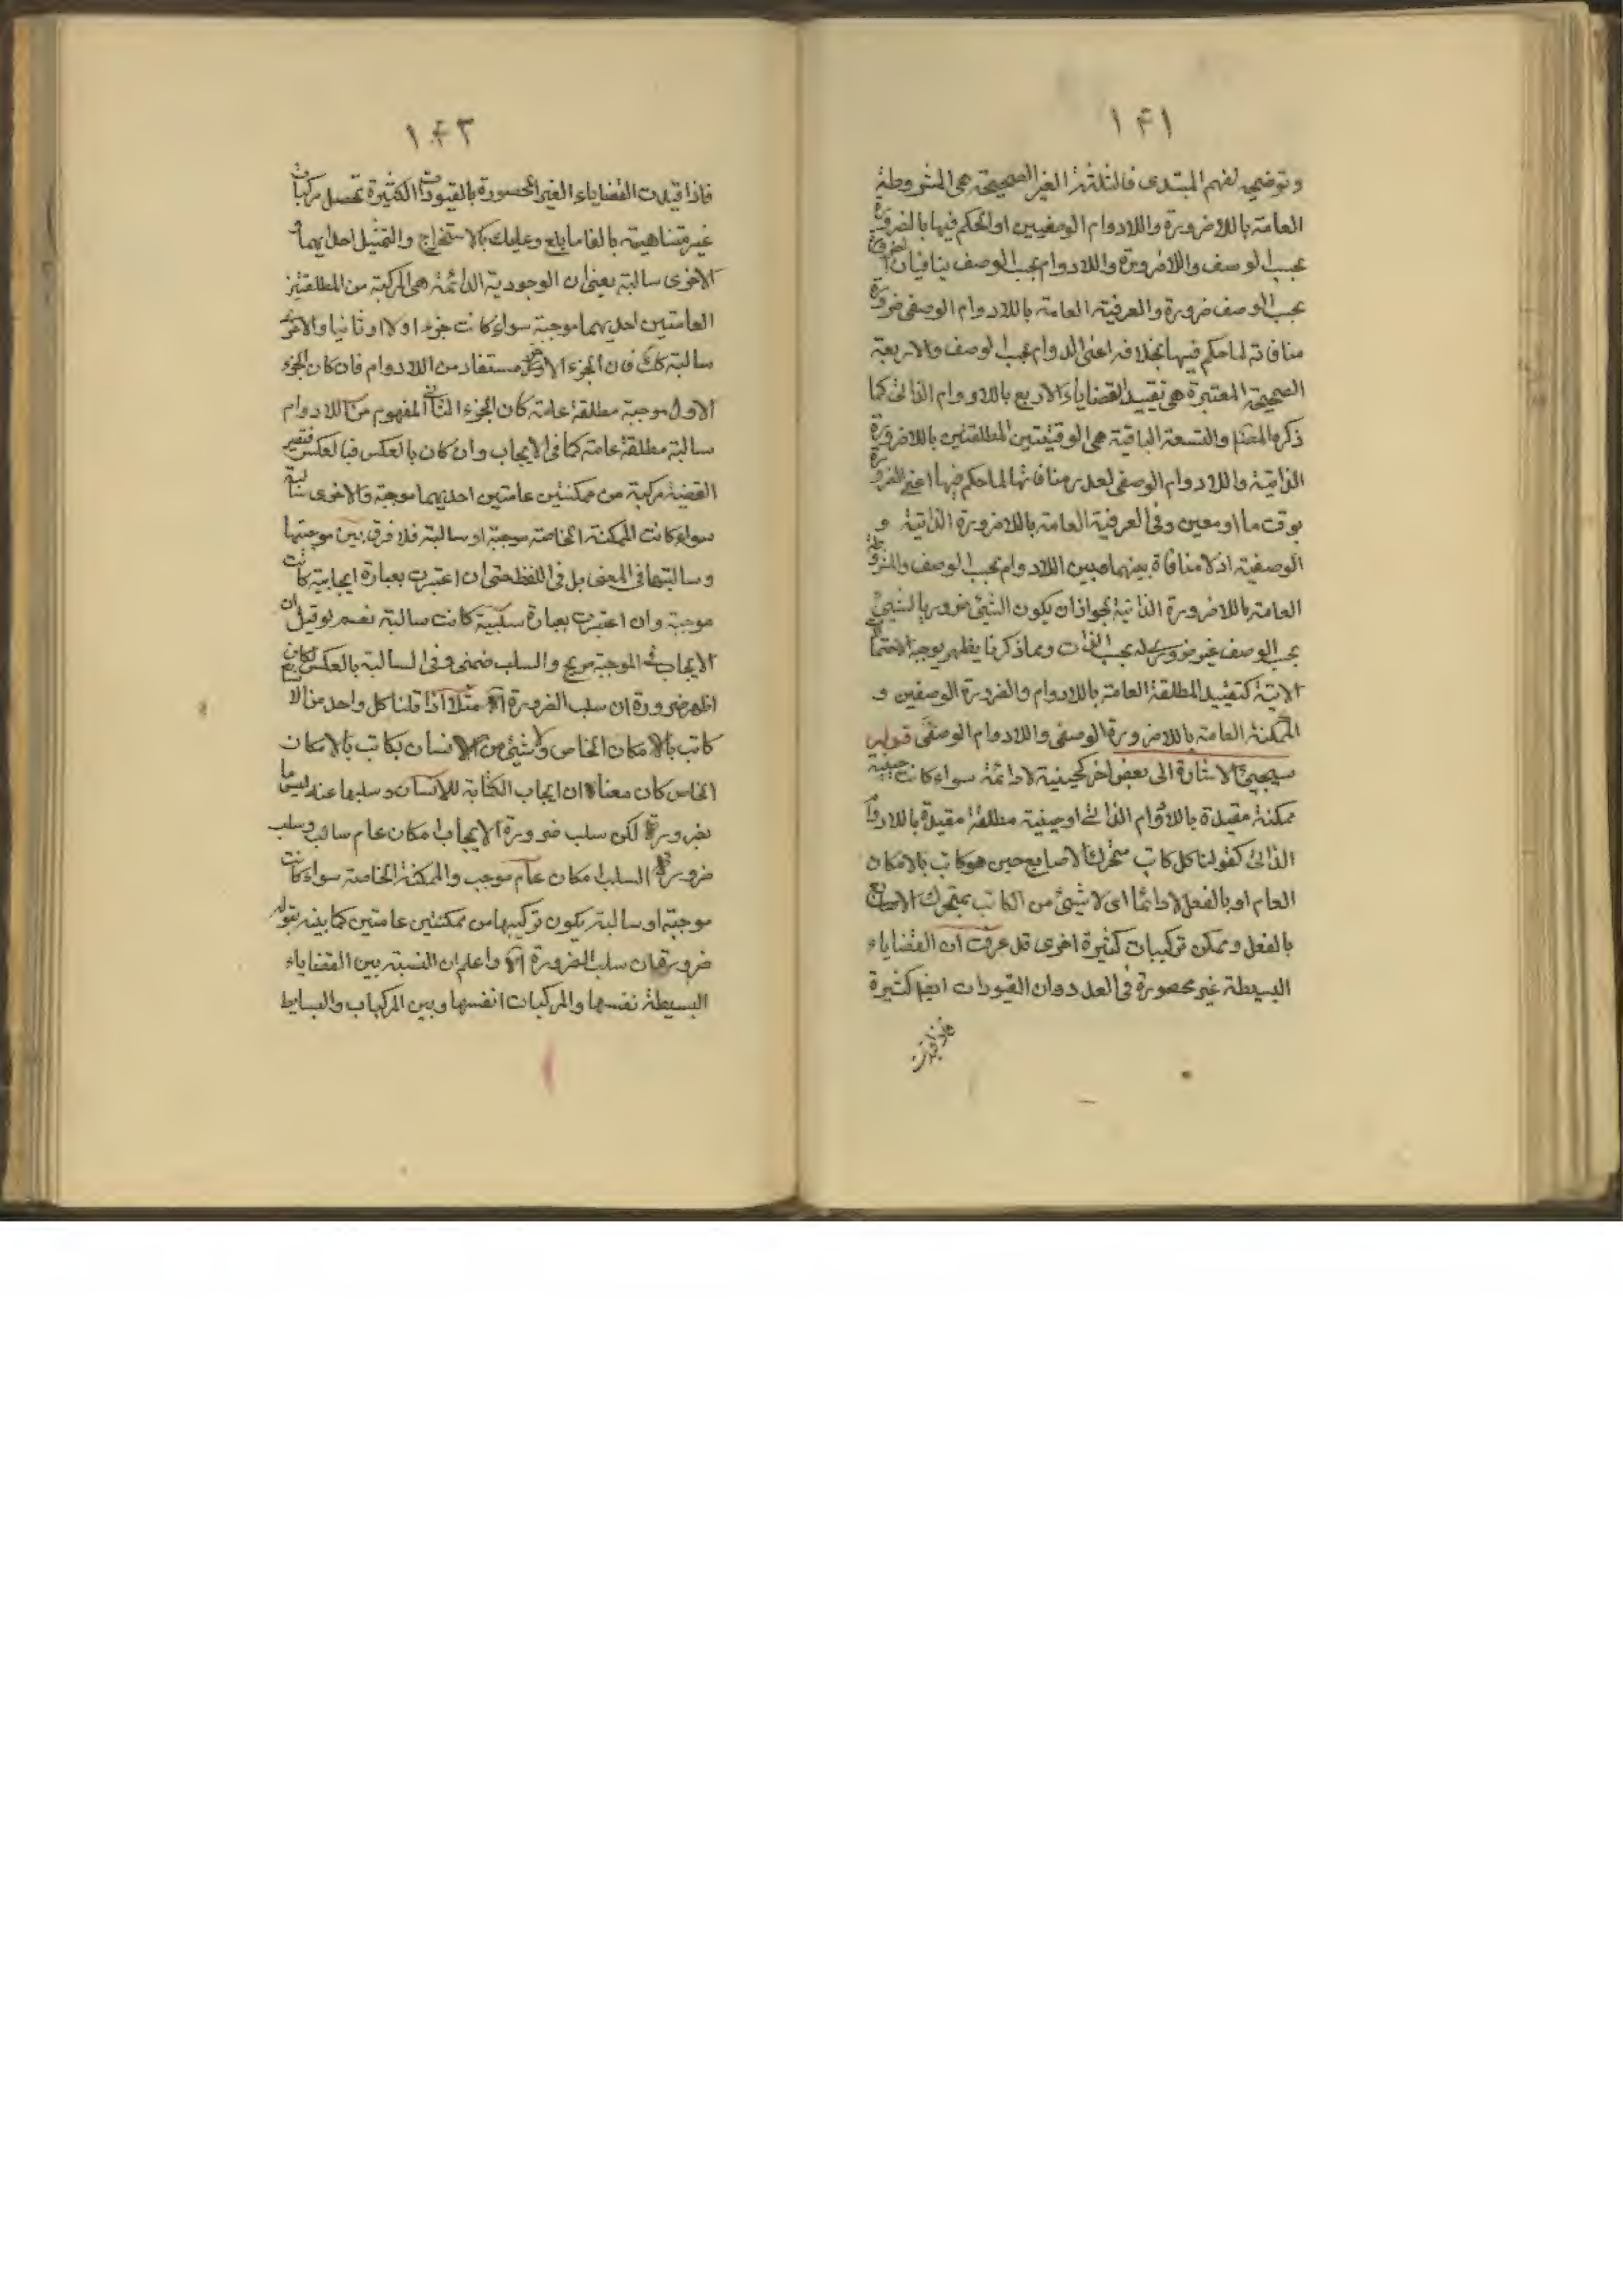 ١٤١
وتوضيح لفهم المبتدى فالثلثة الغير الصحيحة هى المشروطة
العامة باللاضرورة واللادوام الوصفيين اذ الحكم فيها بالضرورة
بحسب الوصف واللاضرورة واللادوام بحسب الوصف ينافيان الضرورة
بحسب الوصف ضرورة والعرفية العامة باللادوام الوصفى ضرورة
منافاته لما حكم فيها بخلافه اعنى الدوام بحسب الوصف والاربعة
الصحيحة المعتبرة هى تقييد القضاياء الاربع باللادوام الذاتى كما
ذكره المصنف والتسعة الباقية هى الوقتيتين المطلقتين باللاضرورة
الذاتية واللادوام الوصفى لعدم منافاتها لما حكم فيها اعنى الضرورة
بوقت ما او معين وفى العرفية العامة باللاضرورة الذاتية و
الوصفية اذ لا منافاة بينهما وبين اللادوام بحسب الوصف والمشروطة
العامة باللاضرورة الذاتية لجواز ان يكون الشيئ ضروريا لشيئ
بحسب الوصف غير ضرورى له بحسب الذات ومما ذكرنا يظهر يوجه الاحتمالات
الاتية كتقييد المطلقة العامة باللادوام والضرورة الوصفين و
الممكنة العامة باللاضرورة الوصفى واللادوام الوصفى قوله
سيجيئ الاشارة الى بعض اخر كحينية لادائمة سواء كانت حينية
ممكنة مقيدة باللادوام الذاتى او حينية مطلقة مقيدة باللادوام
الذاتى كقولنا كل كاتب متحرك الاصابع حين هو كاتب بالامكان
العام او بالفعل لادائما اى لا شيئ من الكاتب بمتحرك الاصابع
بالفعل ويمكن تركيبات كثيرة اخرى قد عرفت ان القضاياء
البسيطة غير محصورة فى العدد وان القيودات ايضا كثيرة
فاذا قيدت
١٤٢
فاذا قيدت القضاياء الغير المحصورة بالقيودات الكثيرة تحصل مركبات
غير متناهية بالغا ما بلغ وعليك بالاستخراج والتمثيل احديهما و
الاخرى سالبة يعنى ان الوجودية الدائمة هى المركبة من المطلقتين
العامتين احديهما موجبة سواء كانت جزء اولا او ثانيا والاخرى
سالبة كك فان الجزء الاخر مستفاد من اللادوام فان كان الجزء
الاول موجبة مطلقة عامة كان الجزء الثانى المفهوم من اللادوام
سالبة مطلقة عامة كما فى الايجاب وان كان بالعكس فبالعكس فتصير
القضية مركبة من ممكنتين عامتين احديهما موجبة والاخرى سالبة
سواء كانت الممكنة الخاصة موجبة او سالبة فلا فرق بين موجبتها
وسالبتها فى المعنى بل فى اللفظ حتى ان اعتبرت بعبارة ايجابية كانت
موجبة وان اعتبرت بعبارة سلبية كانت سالبة نعم لو قيل ان
الايجاب فى الموجبة صريح والسلب ضمنى وفى السالبة بالعكس لكان
اظهر ضرورة ان سلب الضرورة اه مثلا اذا قلنا كل واحد من الا
كاتب بالامكان الخاص ولا شيئ من الانسان بكاتب بالامكان
الخاص كان معناه ان ايجاب الكتابة للانسان وسلبها عنه ليسا
بضرورة لكن سلب ضرورة الايجاب امكان عام سالب وسلب
ضرورة السلب امكان عام موجب والممكنة الخاصة سواء كانت
موجبة او سالبة يكون تركيبها من ممكنتين عامتين كما بينه بقوله
ضرورة ان سلب الضرورة اه واعلم ان النسبة بين القضاياء
البسيطة نفسها والمركبات انفسها وبين المركبات والبسايط